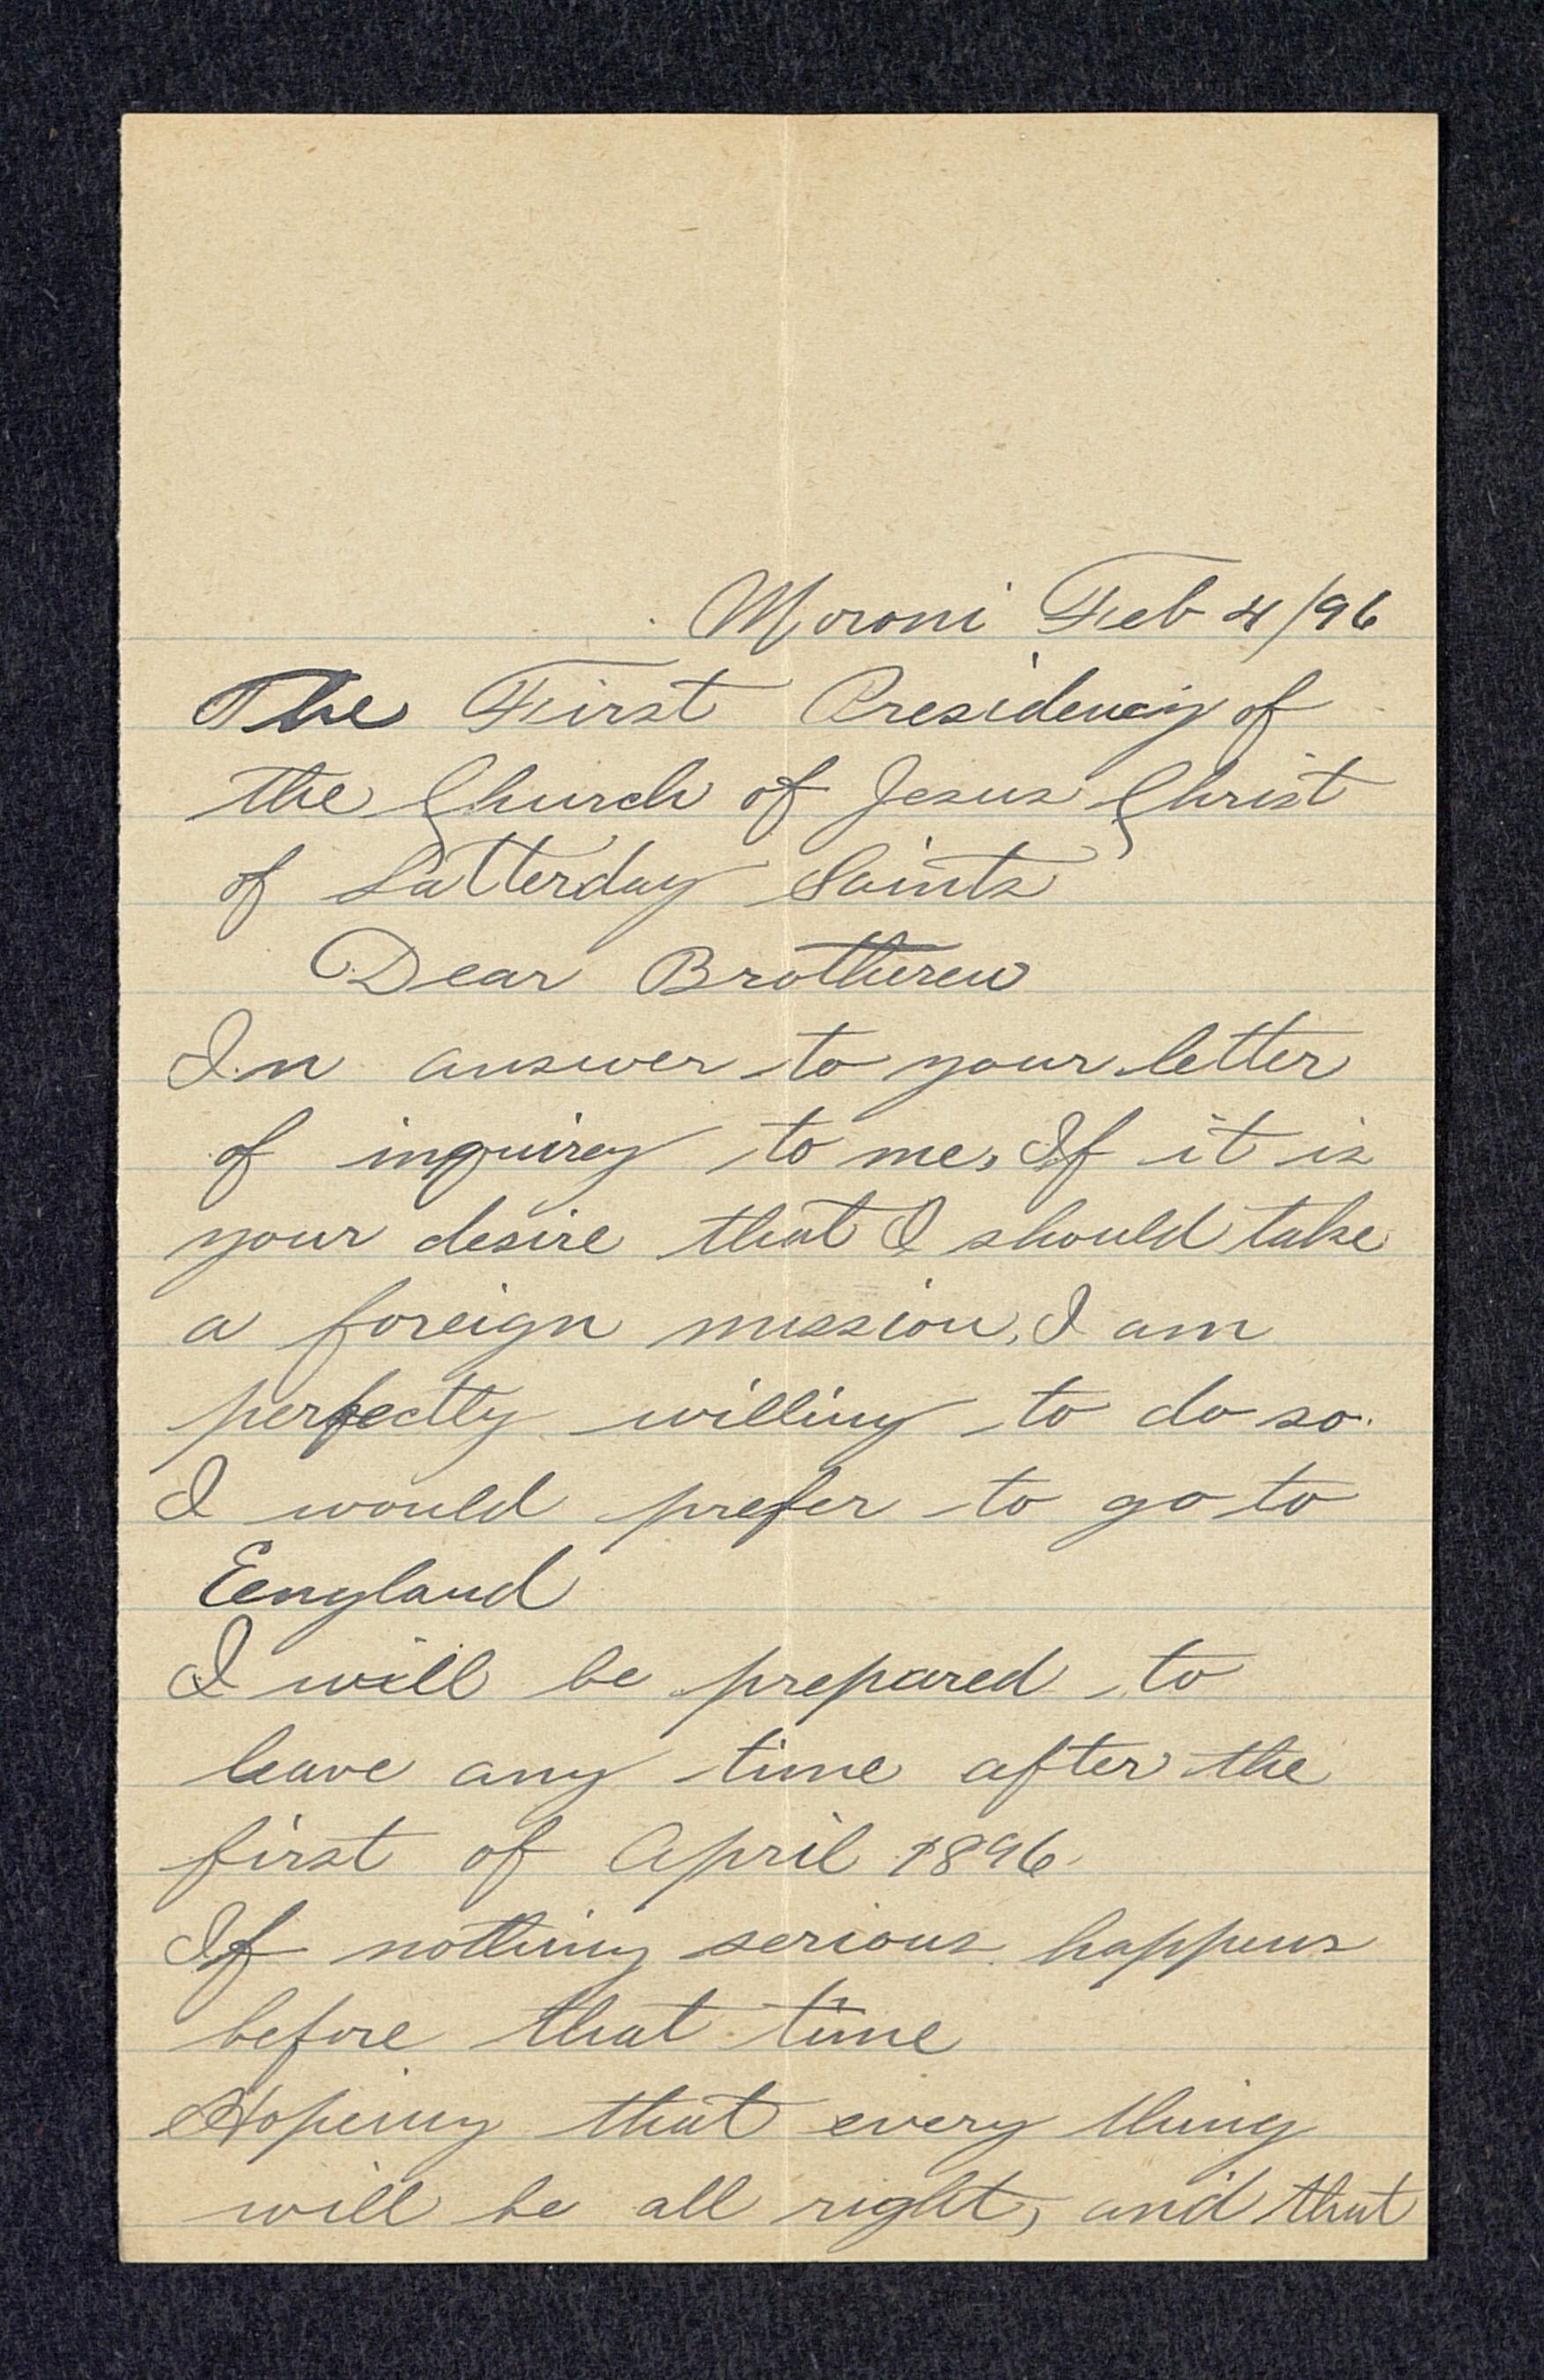 Moroni Feb 4/96
The First Presidency of
the Church of Jesus Christ
of Latterday Saints
Dear Brotheren
In answer to your letter
of inquirey to me, If it is
your desire that I should take
a foreign mission, I am
perfectly willing to do so.
I would prefer to go to
Eengland
I will be prepared to
leave any time after the
first of April 1896
If nothing serious happens
before that time
Hopeing that every thing
will be all right, and that